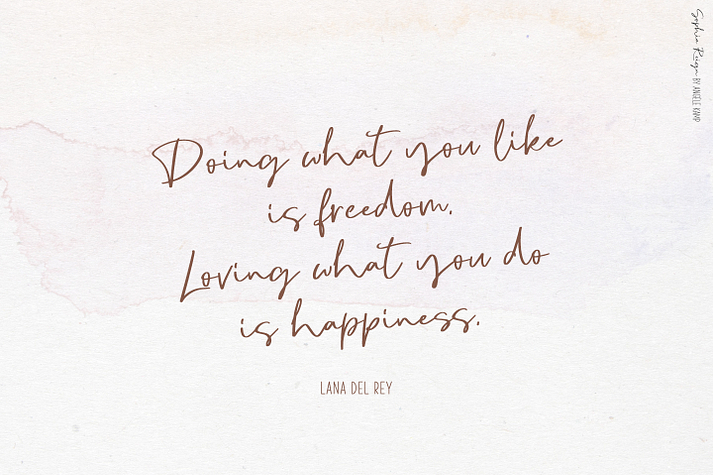 Doing what you like
is freedom.
Loving what you do
is happiness.
LANA DEL REY
Sophia Reign BY ANGELE KAMP